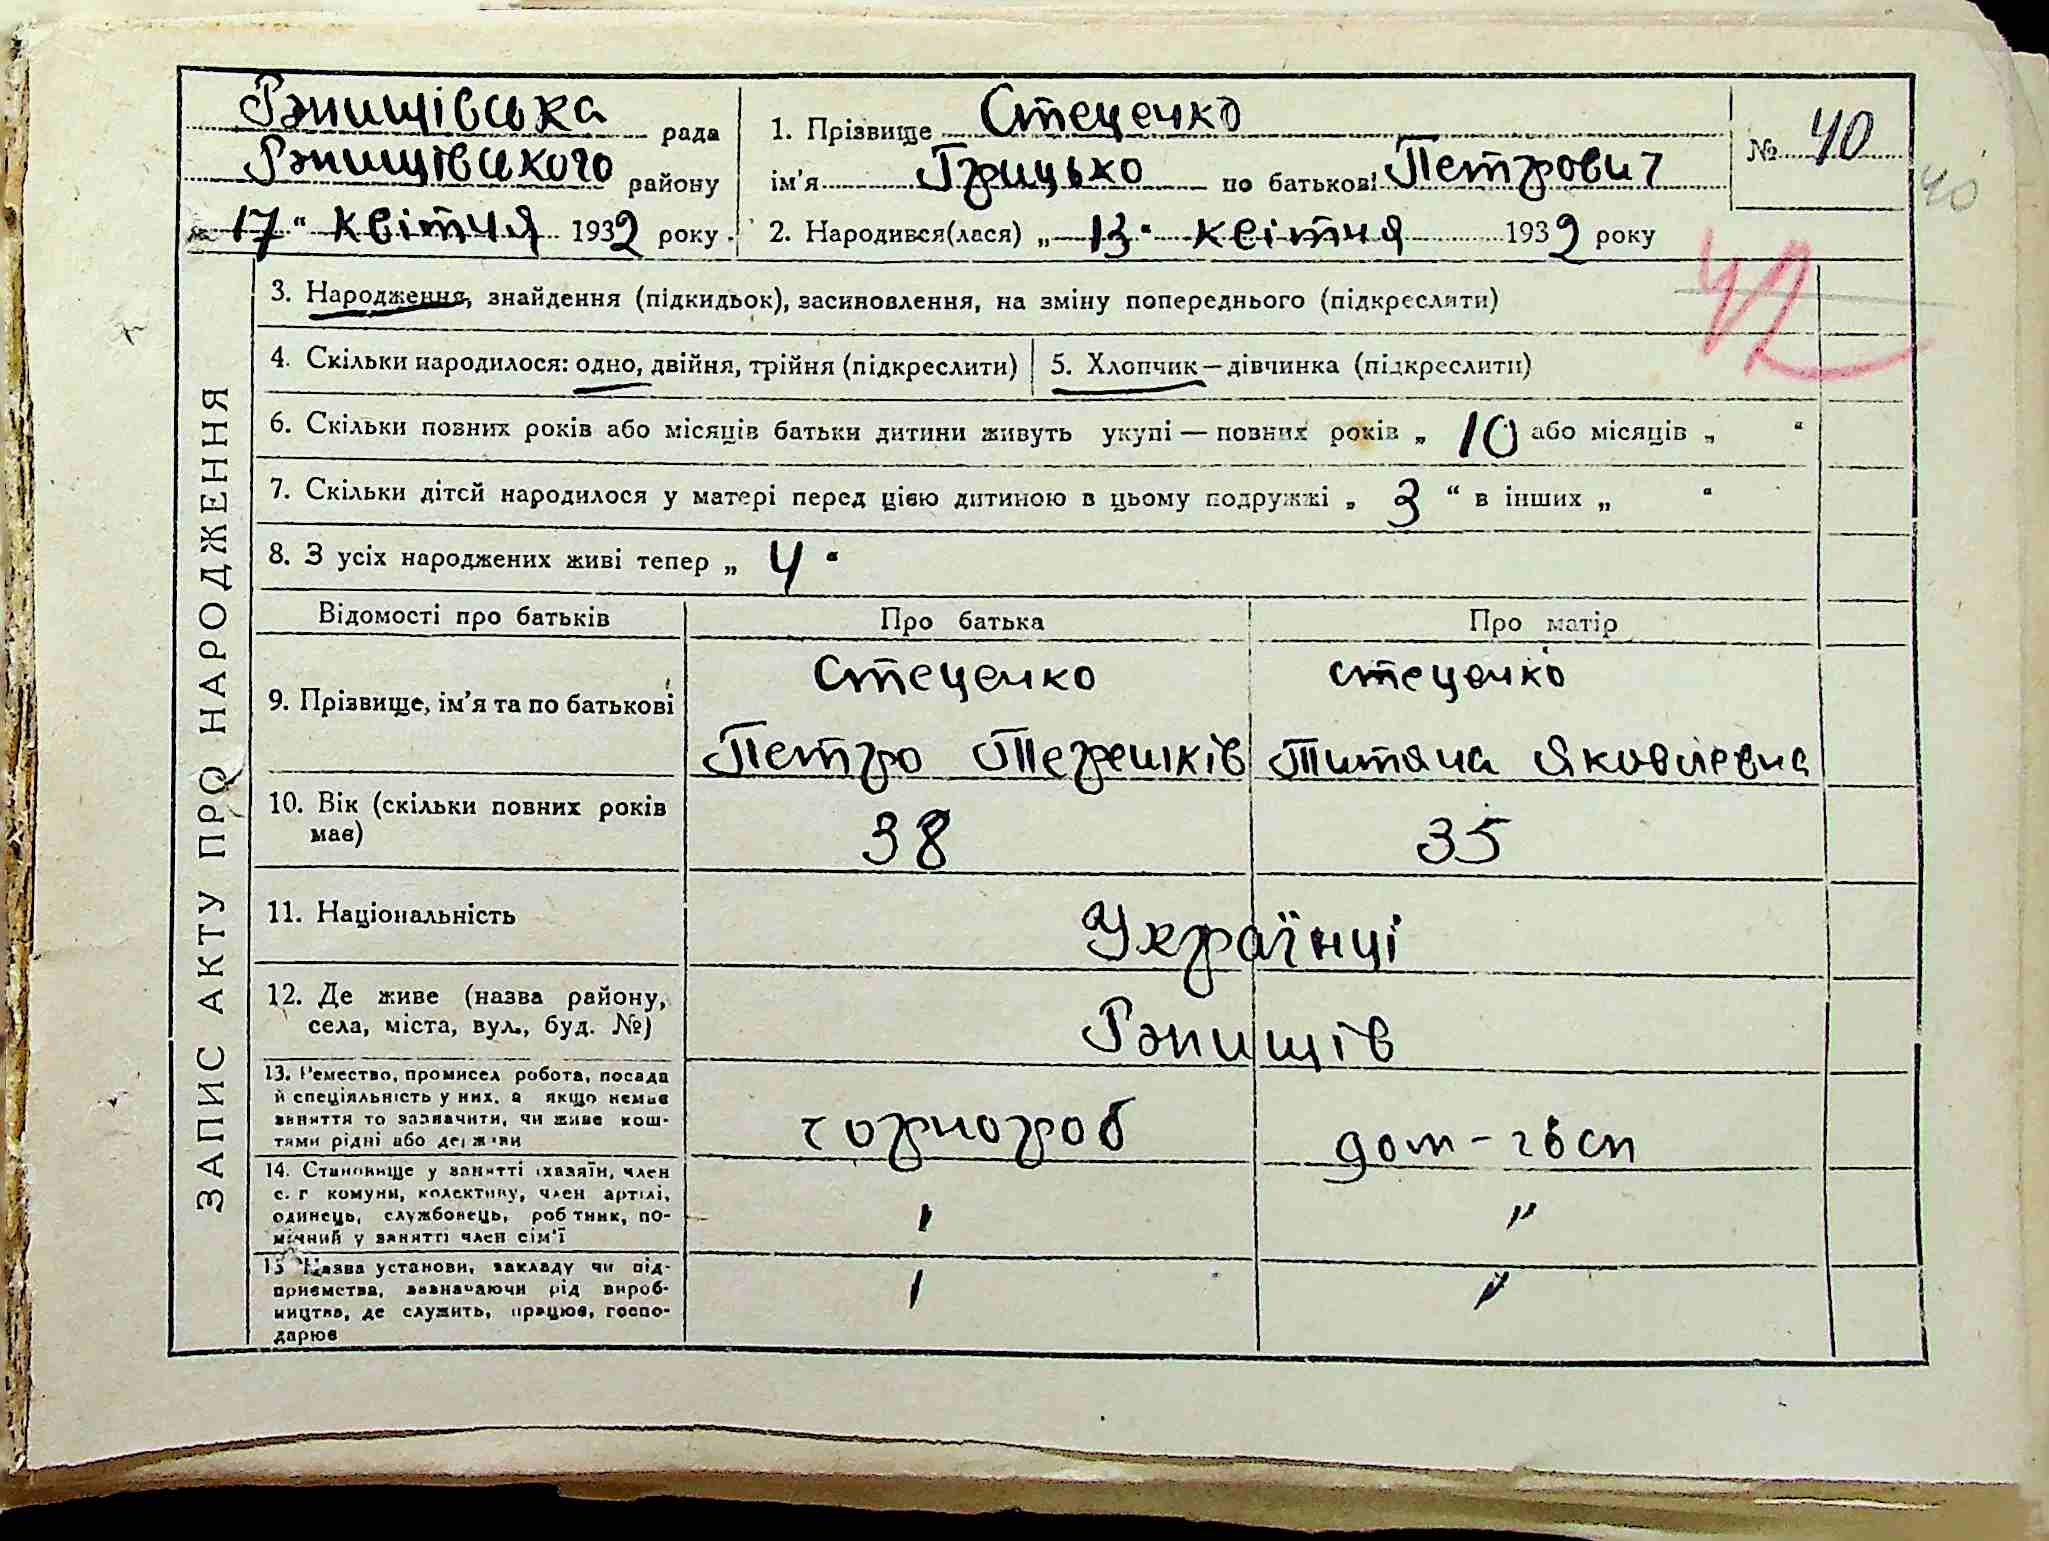 Ржищівська рада
Ржищівського району
„17“ квітня 1932 року.
1. Прізвище Стеценко
ім'я Грицько по батькові Петрович
2. Народився(лася) „13“ квітня 1932 року
№ 40
40
42
ЗАПИС АКТУ ПРО НАРОДЖЕННЯ
3. Народження, знайдення (підкидьок), засиновлення, на зміну попереднього (підкреслити)
4. Скільки народилося: одно, двійня, трійня (підкреслити)
5. Хлопчик — дівчинка (підкреслити)
6. Скільки повних років або місяців батьки дитини живуть укупі — повних років „ 10 або місяців „ “
7. Скільки дітей народилося у матері перед цією дитиною в цьому подружжі „ 3 “ в інших „ “
8. З усіх народжених живі тепер „ 4 “
Відомості про батьків Про батька Про матір
9. Прізвище, ім'я та по батькові
Стеценко
Петро Терешків
стеценко
Титяна Яковлевна
10. Вік (скільки повних років
має)
38 35
11. Національність
Українці
12. Де живе (назва району,
села, міста, вул., буд. №)
Ржищів
13. Ремество, промисел робота, посада
й спеціяльність у них, а якщо немає
заняття то зазначити, чи живе кош-
тами рідні або держави
чорнороб дом-гвсп
14. Становище у занятті (хазяїн, член
с. г комуни, колективу, член артілі,
одинець, службовець, робітник, по-
мічний у занятті член сім'ї
" "
15 Назва установи, закладу чи під-
приємства, зазначаючи рід вироб-
ництва, де служить, працює, госпо-
дарює
" "